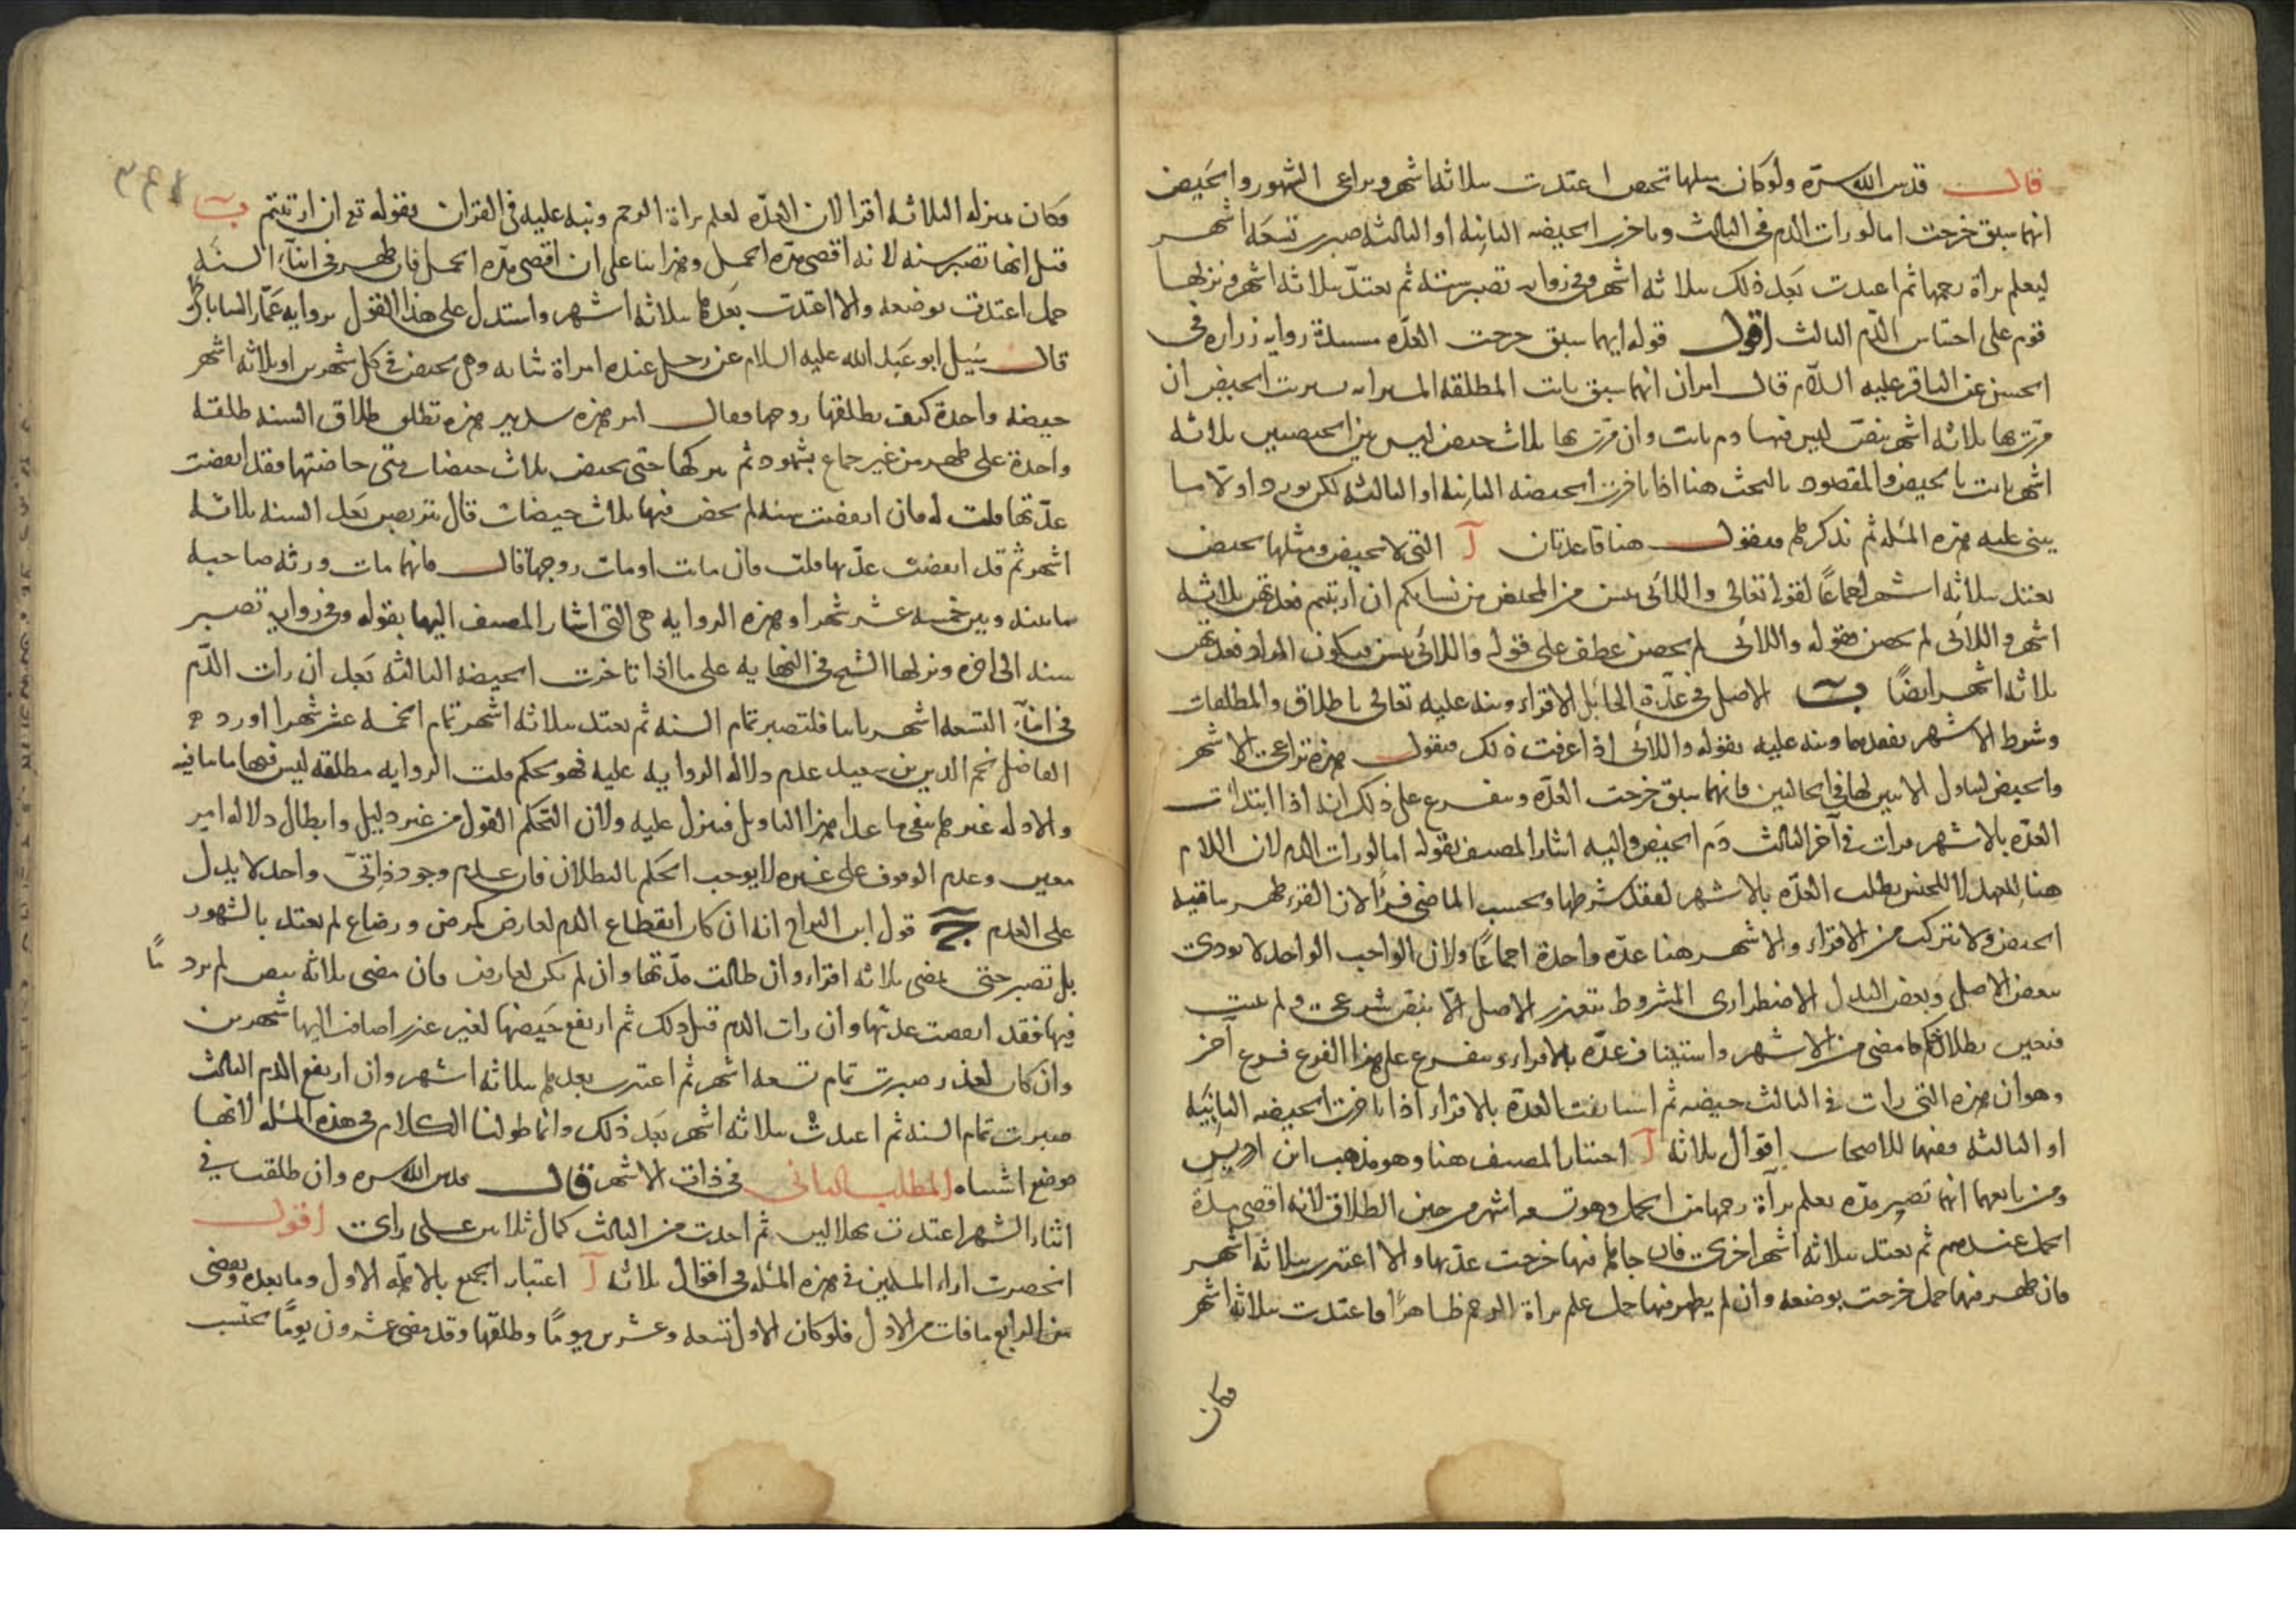 قال قدس الله سره ولو كان مثلها تحيض اعتدت بثلاثة اشهر وتراعى الشهور والحيض
ايهما سبق خرجت اما لو رات الدم فى الثالث وتاخرت الحيضه الثانيه او الثالثه صبرت تسعة اشهر
ليعلم براة رحمها ثم اعتدت بعد ذلك بثلاثه اشهر وفى روايه تصبر سنة ثم تعتد بثلاثه اشهر ونزلها
قوم على احتباس الدم الثالث اقول قوله ايهما سبق خرجت العدة مستندة روايه زرارة فى
الحسن عن الباقر عليه السلام قال امران ايهما سبق بانت المطلقه المسترابه تستريب الحيض ان
مرت بها ثلاثه اشهر بيض ليس فيها دم بانت وان مرت بها ثلاث حيض ليس بين الحيضتين ثلاثه
اشهر بانت بالحيض والمقصود بالبحث هنا اذا تاخرت الحيضه الثانيه او الثالثه لكن نورد اولا ما
يبنى عليه هذه المسله ثم نذكرها فنقول هنا قاعدتان آ التى لا تحيض ومثلها تحيض
تعتد بثلاثه اشهر اجماعًا لقوله تعالى واللائى يئسن من المحيض من نسايكم ان ارتبتم فعدتهن ثلاثه
اشهر واللائى لم يحضن فقوله واللائى لم يحضن عطف على قوله واللائى يئسن فيكون المراد فعدتهن
ثلاثه اشهر ايضًا ب الاصل فى عدة الحائل الاقراء ونبه عليه تعالى باطلاق والمطلقات
وشرط الاشهر بفقدها ونبه عليه بقوله واللائى اذا عرفت ذلك فنقول هذه تراعى الاشهر
والحيض لتناول الايتين لها فى الحالتين فايهما سبق خرجت العدة ويتفرع على ذلك انه اذا ابتدات
العدة بالاشهر فرات فى آخر الثالث دم الحيض واليه اشار المصنف بقوله اما لو رات الدم لان اللام
هنا للعهد لا للجنس بطلت العدة بالاشهر لفقد شرطها ويحسب الماضى قرءًا لان القرء طهر يتعقبه
الحيض ولا تتركب من الاقراء والاشهر هنا عدة واحدة اجماعًا ولان الواجب الواحد لا يودى
ببعض الاصل وبعض البدل الاضطرارى المشروط بتعذر الاصل الا بنص شرعى ولم يثبت
فتعين بطلان حكم ما مضى من الاشهر واستيناف عدة بالاقراء ويتفرع على هذا الفرع فرع آخر
وهو ان هذه التى رات فى الثالث حيضه ثم استانفت العدة بالاقراء اذا تاخرت الحيضه الثانيه
او الثالثه ففيها للاصحاب اقوال ثلاثه آ اختيار المصنف هنا وهو مذهب ابن ادريس
ومن تابعهما انها تصبر مدة يعلم برآة رحمها من الحمل وهو تسعة اشهر من حين الطلاق لانه اقصى مدة
الحمل عندهم ثم تعتد بثلاثه اشهر اخرى فان جاء ملها فيها خرجت عدتها والا اعتدت بثلاثه اشهر
فان ظهر فيها حمل خرجت بوضعه وان لم يظهر فيها حمل علم براة الرحم ظاهرًا فاعتدت بثلاثه اشهر
فكان
فكان بمنزله الثلاثه اقرا لان العدة لعلم براة الرحم ونبه عليه فى القران بقوله تع ان ارتبتم ب
قيل انها تصبر سنه لانه اقصى مدة الحمل وهذا بنا على ان اقصى مدة الحمل فان ظهر فى اثنآء السنه
حمل اعتدت بوضعه والا اعتدت بعدها بثلاثه اشهر واستدل على هذا القول بروايه عمار الساباطى
قال سيل ابو عبد الله عليه السلام عن رجل عنده امراة شابه وهى تحيض فى كل شهرين او ثلاثه اشهر
حيضه واحدة كيف يطلقها زوجها فقال امر هذه شديد هذه تطلق طلاق السنه طلقه
واحدة على طهر من غير جماع بشهود ثم يتركها حتى تحيض ثلاث حيضات متى حاضتها فقد انقضت
عدتها قلت له فان انقضت سنه لم تحض فيها ثلاث حيضات قال تتربص بعد السنه ثلاثه
اشهر ثم قد انقضت عدتها قلت فان ماتت او مات زوجها قال فايهما مات ورثه صاحبه
ما بينه وبين خمسه عشر شهرا وهذه الروايه هى التى اشار المصنف اليها بقوله وفى روايه تصبر
سنه الى اخره ونزلها الشيخ فى النهايه على ما اذا تاخرت الحيضه الثالثه بعد ان رات الدم
فى اثنآء التسعه اشهر ثانيا فلتصبر تمام السنه ثم تعتد بثلاثه اشهر تمام الخمسه عشر شهرا اورد
الفاضل نجم الدين بن سعيد عدم دلاله الروايه عليه فهو تحكم قلت الروايه مطلقه ليس فيها ما ينافيه
والادله غيرها ينفى ما عدا هذا التاويل فينزل عليه ولان التحكم القول من غير دليل وابطال دلاله امر
معين وعدم الوقوف على غيره لا يوجب الحكم بالبطلان فان عدم وجود ذاتى واحد لا يدل
على العدم ج قول ابن البراج انه ان كان انقطاع الدم لعارض كمرض ورضاع لم تعتد بالشهور
بل تصبر حتى تمضى ثلاثه اقراء وان طالت مدتها وان لم يكن لعارض فان مضى ثلاثه بيض لم تر دمًا
فيها فقد انقضت عدتها وان رات الدم قبل ذلك ثم ارتفع حيضها لغير عذر اضافت اليها شهرين
وان كان لعذر صبرت تمام تسعه اشهر ثم اعتدت بعدها بثلاثه اشهر وان ارتفع الدم الثالث
صبرت تمام السنه ثم اعتدت بثلاثه اشهر بعد ذلك وانما طولنا الكلام فى هذه المسله لانها
موضع اشتباه المطلب الثانى فى ذات الاشهر قال قدس الله سره وان طلقت فى
اثناء الشهر اعتدت بهلالين ثم اخذت من الثالث كمال ثلاثين على راى اقول
انحصرت اراء المسلمين فى هذه المسله فى اقوال ثلاثه آ اعتبار الجميع بالاهله الاول وما بعده ويقضى
من الرابع ما فات من الاول فلو كان الاول تسعه وعشرين يومًا وطلقها وقد مضى عشرون يومًا تحتسب